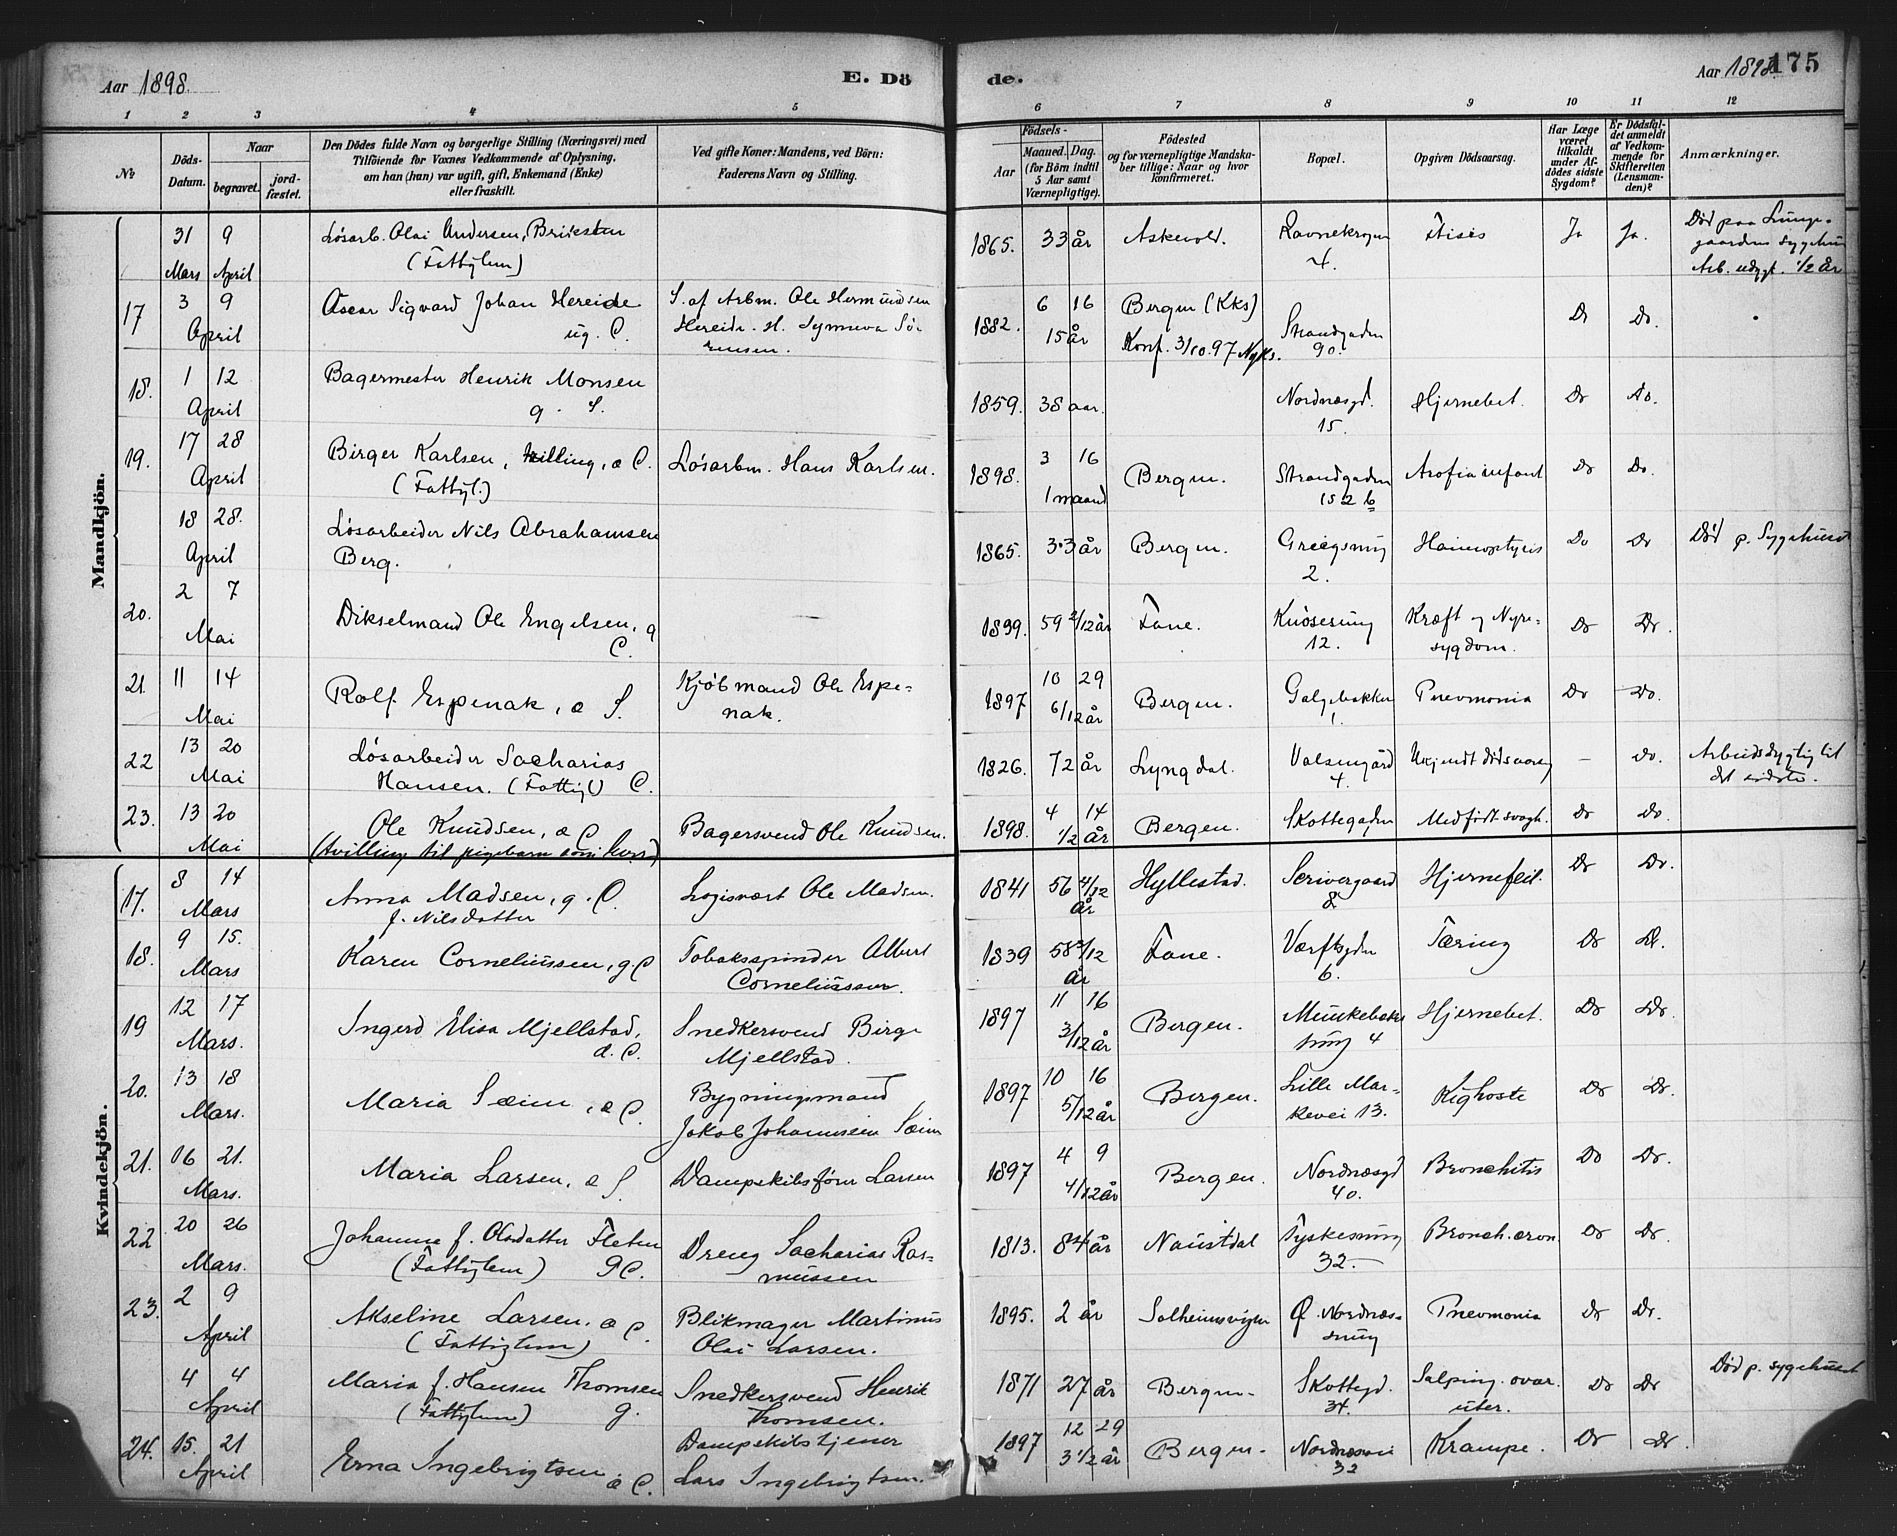 Aar 1898.
E. Dö
de.
Aar 1898.
175
1 2 3 4 5 6 7 8 9 10 11 12
No
Döds-Datum.
Naar
begravet.
jord-fæstet.
Den Dödes fulde Navn og borgerlige Stilling (Næringsvei) med
Tilföiende for Voxnes Vedkommende af Oplysning,
om han (hun) var ugift, gift, Enkemand (Enke)
eller fraskilt.
Ved gifte Koner: Mandens, ved Börn:
Faderens Navn og Stilling.
Födsels-
Aar
Maaned. Dag.
(for Börn indtil
5 Aar samt
Værnepligtige).
Födested
og for værnepligtige Mandska-
ber tillige: Naar og hvor
konfirmeret.
Bopæl.
Opgiven Dödsaarsag.
Har Læge
været
tilkaldt
under Af-
dödes sidste
Sygdom?
Er Dödsfal-
det anmeldt
af Vedkom-
mende for
Skifteretten
(Lensman-
den)?
Anmærkninger.
Mandkjön.
31 Mars 9 April Lösarb. Olai Andersen,
(Fattylem)
1865. 33 år Askevold. Ravnekrogen 4. Ftisis Ja Ja. Död paa Lunge-
gaardens sygehus
Arb. udygt. 1/2 år
17 3 9 April Oscar Sigvard Johan Hereide
ug. C.
S. af Arbm. Ole Hermundsen
Hereide. H. Synneva Sö-
rensen.
1882. 6 16 15 år Bergen (Kks)
Konf. 3/10.97 Nyks.
Strandgaden 90. Do Do.
18. 1 12 April Bagermester Henrik Monsen
g. S.
1859. 38 aar. Nordnæsgd. 15. Hjernebet. Do Do.
19. 17 28 April Birger Karlsen, tvilling, æ C.
(Fattyl.)
Lösarbm. Hans Karlsen.
1898. 3 16 1 maaned Bergen. Strandgaden 152 b Atrofia infant Do Do.
18 28. April Lösarbeider Nils Abrahamsen
Berg.
1865. 33 år Bergen. Greigsmug 2. Haimoptysis Do Do Död p. Sygehuset
20. 2 7 Mai Dikselmand Ole Engelsen, g
C.
1839. 59 2/12 år Fane. Knösesmug 12. Kræft og Nyre-
sygdom. Do Do.
21. 11 14 Mai Rolf Espenak, æ S.
Kjöbmand Ole Espe-
nak.
1897 10 29 6/12 år Bergen. Galgebakken 1. Pnevmonia Do Do.
22 13 20 Mai Lösarbeider Sacharias
Hansen. (Fattigl) C.
1826. 72 år Lyngdal. Valsengård 4. Ukjendt dödsaarsag — Do. Arbeidsdygtig til
det sidste.
23. 13 20 Mai Ole Knudsen, æ C
(tvilling til pigebarn)
Bagersvend Ole Knudsen.
1898. 4 14 1/2 år Bergen. Skottegaden Medfödt svagh. Do Do.
Kvindekjön.
17. 8 14 Mars Anna Madsen, g. C.
f. Nilsdatter
Logisvært Ole Madsen.
1841 56 4/12 år Hyllestad. Scrivergaard 8 Hjernefeil. Do Do.
18. 9 15. Mars Karen Corneliussen, g C
Tobaksspinder Albert
Corneliussen.
1839 58 3/12 år Fane. Værftsgden 6. Tæring Do Do.
19 12 17 Mars. Ingerd Elisa Mjellstad,
æ. C.
Snedkersvend Birge
Mjellstad.
1897 11 16 3/12 år Bergen. Munkebæks
smug 4 Hjernebet. Do Do.
20. 13 18 Mars. Maria Sæim, æ C.
Bygningsmand
Jakob Johannesen Sæim
1897 10 16 5/12 år Bergen. Lille Mar-
kevei 13. Kighoste Do Do.
21. 16 21. Mars. Maria Larsen, æ S.
Dampskibsförer Larsen
1897 4 9 4/12 år Bergen. Nordnæsgd 40. Bronchitis Do Do.
22 20 26 Mars. Johanne f. Olsdatter Fleten
(Fattiglem) g C.
Dreng Sacharias Ras-
mussen
1813. 84 år Naustdal Tyskesmug 32. Bronch. cron Do Do.
23. 2 9 April Akseline Larsen, æ C.
(Fattiglem)
Blikmager Martinus
Olai Larsen.
1895. 2 år Solheimsvigen Ø. Nordnæs-
smug Pnevmonia Do Do.
4 4 April Maria f. Hansen Thomsen
(Fattylem) g.
Snedkersvend Henrik
Thomsen.
1871 27 år Bergen. Skottegd. 34. Salping. ovar.
uter. Do Do Död p. sygehuset
24. 15. 21 April Erna Ingebrigtsen æ C.
Dampskibstjener
Lars Ingebrigtsen.
1897 12 29 3 1/2 år Bergen. Nordnæsvei 32 Krampe. Do Do.